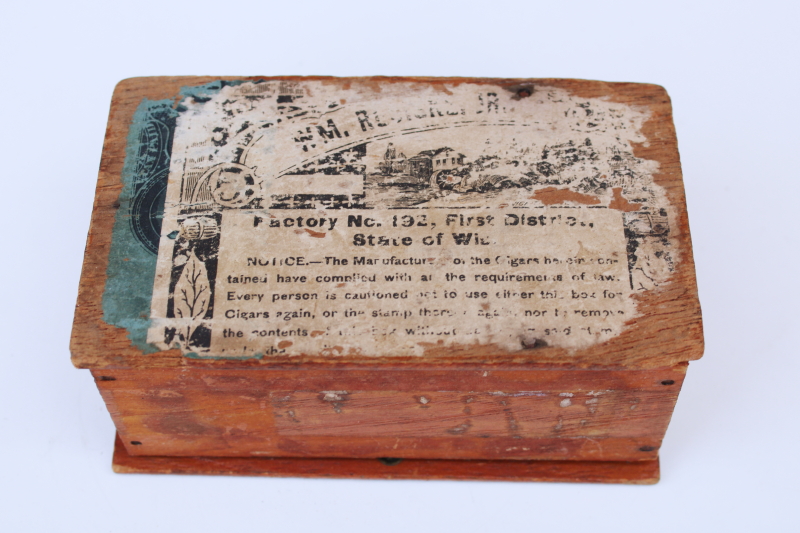 WM.
Factory No. 192, First District,
State of Wis.
NOTICE.—The Manufacturer of the Cigars herein con-
tained have complied with all the requirements of law.
Every person is cautioned not to use either this box for
Cigars again, or the stamp thereon again, nor to remove
the contents of this box without